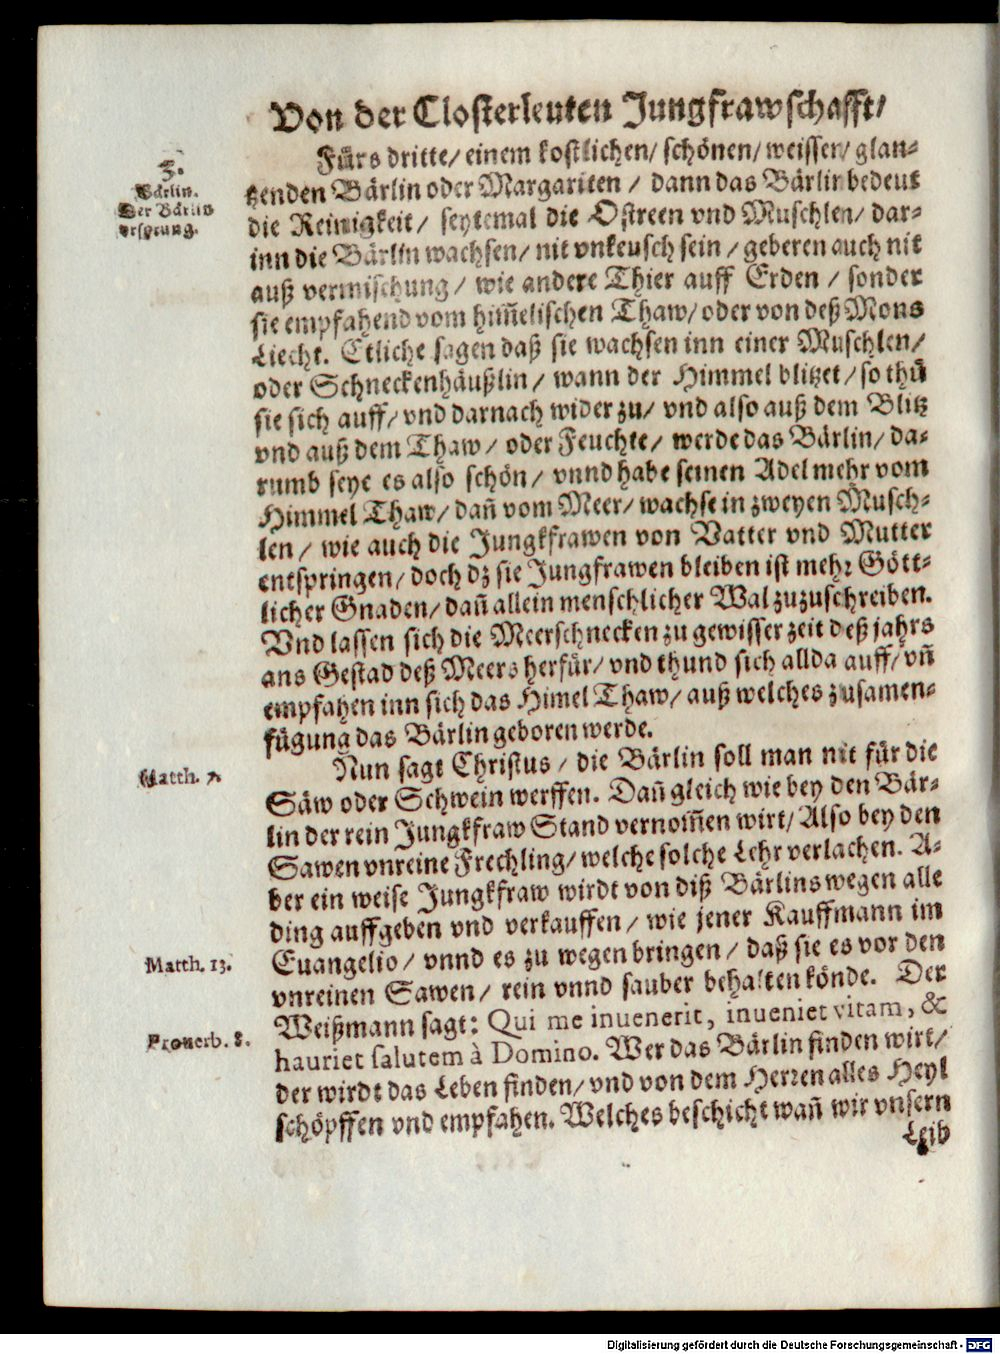 Von der Closterleuten Jungfrawschafft/
3.
Bärlin.
Der Bärlin
vrsprung.
Fürs dritte/ einem kostlichen/ schönen/ weissen/ glan-
tzenden Bärlin oder Margariten / dann das Bärlin bedeut
die Reinigkeit/ seytemal die Ostreen vnd Muschlen/ dar-
inn die Bärlin wachsen/ nit vnkeusch sein / geberen auch nit
auß vermischung / wie andere Thier auff Erden / sonder
sie empfahend vom him̃elischen Thaw/ oder von deß Mons
Liecht. Etliche sagen daß sie wachsen inn einer Muschlen/
oder Schneckenhäußlin / wann der Himmel blitzet / so thů
sie sich auff/ vnd darnach wider zu/ vnd also auß dem Blitz
vnd auß dem Thaw / oder Feuchte/ werde das Bärlin/ da-
rumb seye es also schön/ vnnd habe seinen Adel mehr vom
Himmel Thaw/ dañ vom Meer/ wachse in zweyen Musch-
len / wie auch die Jungkfrawen von Vatter vnd Mutter
entspringen/ doch dz sie Jungfrawen bleiben ist mehr Gött-
licher Gnaden/ dañ allein menschlicher Wal zuzuschreiben.
Vnd lassen sich die Meerschnecken zu gewisser zeit deß jahrs
ans Gestad deß Meers herfür/ vnd thund sich allda auff/ vñ
empfahen inn sich das Himel Thaw/ auß welches zusamen-
fügung das Bärlin geboren werde.
Matth. 7.
Nun sagt Christus / die Bärlin soll man nit für die
Säw oder Schwein werffen. Dañ gleich wie bey den Bär-
lin der rein Jungkfraw Stand vernom̃en wirt/ Also bey den
Sawen vnreine Frechling/ welche solche Lehr verlachen. A-
ber ein weise Jungkfraw wirdt von diß Bärlins wegen alle
ding auffgeben vnd verkauffen / wie jener Kauffmann im
Matth. 13.
Euangelio/ vnnd es zu wegen bringen / daß sie es vor den
vnreinen Sawen/ rein vnnd sauber behalten könde. Der
Prouerb. 8.
Weißmann sagt: Qui me inuenerit, inueniet vitam, &
hauriet salutem à Domino. Wer das Bärlin finden wirt/
der wirdt das Leben finden/ vnd von dem Herren alles Heyl
schöpffen vnd empfahen. Welches beschicht wañ wir vnsern
Leib
Digitalisierung gefördert durch die Deutsche Forschungsgemeinschaft - DFG